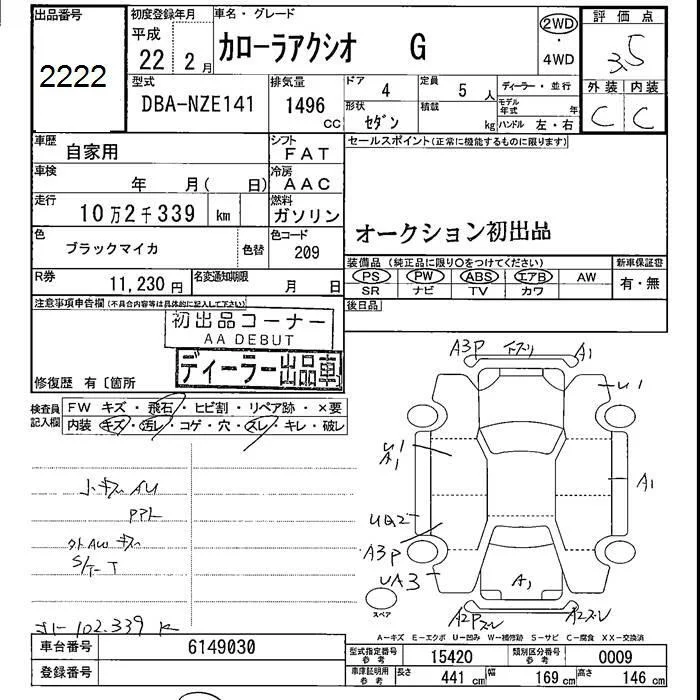 出品番号
2222
初度登録年月
平成
22 2月
車名・グレード
カローラアクシオ G
2WD
・
4WD
評価点
3.5
外装 内装
C C
型式
DBA-NZE141
排気量
1496
cc
ドア
4
定員
5 人
ディーラー・並行
形状
セダン
積載
kg
モデル年式 年
ハンドル 左・右
車歴
自家用
シフト
FAT
セールスポイント(正常に機能するものに限ります)
オークション初出品
車検
年 月( 日)
冷房
AAC
走行
10万2千339 km
燃料
ガソリン
色
ブラックマイカ
色替
色コード
209
装備品(純正品に限り○をつけてください)
新車保証書
PS PW ABS エアB AW
有・無
SR ナビ TV カワ
R券
11,230 円
名変通知期限
月 日
後日品
注意事項申告欄(不具合内容等は具体的に記入して下さい)
初出品コーナー
AA DEBUT
ディーラー出品車
修復歴 有〔箇所
検査員
記入欄
FW キズ・飛石・ヒビ割・リペア跡・×要
内装 キズ・汚レ・コゲ・穴・スレ・キレ・破レ
A3P
A1
U1
U1
A1
A1
UA2
A3P
UA3
A1
A2Pスレ
A2スレ
スペア
小キズAU
PPL
外AWキズ
S/T-T
102.339 K
A-キズ E-エクボ U-凹み W-補修跡 S-サビ C-腐食 XX-交換済
車台番号
6149030
型式指定番号
参考
15420
類別区分番号
参考
0009
登録番号
車庫証明用
参考
長さ
441 cm
幅
169 cm
高さ
146 cm